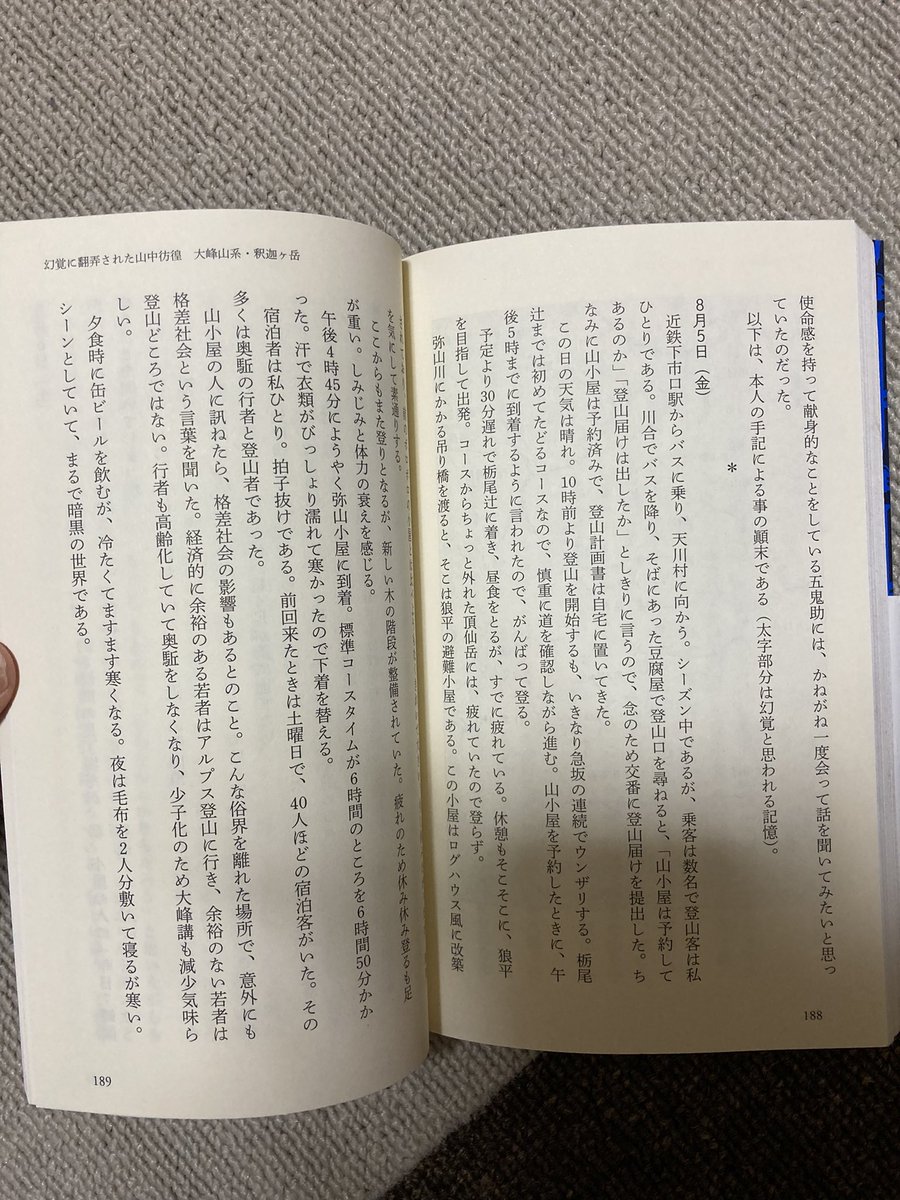 使命感を持って献身的なことをしている五鬼助には、かねがね一度会って話を聞いてみたいと思っ
ていたのだった。
以下は、本人の手記による事の顛末である（太字部分は幻覚と思われる記憶）。
＊
8月5日（金）
近鉄下市口駅からバスに乗り、天川村に向かう。シーズン中であるが、乗客は数名で登山客は私
ひとりである。川合でバスを降り、そばにあった豆腐屋で登山口を尋ねると、「山小屋は予約して
あるのか」「登山届けは出したか」としきりに言うので、念のため交番に登山届けを提出した。ち
なみに山小屋は予約済みで、登山計画書は自宅に置いてきた。
この日の天気は晴れ。10時前より登山を開始するも、いきなり急坂の連続でウンザリする。栃尾
辻までは初めてたどるコースなので、慎重に道を確認しながら進む。山小屋を予約したときに、午
後5時までに到着するように言われたので、がんばって登る。
予定より30分遅れで栃尾辻に着き、昼食をとるが、すでに疲れている。休憩もそこそこに、狼平
を目指して出発。コースからちょっと外れた頂仙岳には、疲れていたので登らず。
弥山川にかかる吊り橋を渡ると、そこは狼平の避難小屋である。この小屋はログハウス風に改築
188
幻覚に翻弄された山中彷徨　大峰山系・釈迦ヶ岳
を気にして素通りする。
ここからもまた登りとなるが、新しい木の階段が整備されていた。疲れのため休み休み登るも足
が重い。しみじみと体力の衰えを感じる。
午後4時45分にようやく弥山小屋に到着。標準コースタイムが6時間のところを6時間50分かか
った。汗で衣類がびっしょり濡れて寒かったので下着を替える。
宿泊者は私ひとり。拍子抜けである。前回来たときは土曜日で、40人ほどの宿泊客がいた。その
多くは奥駈の行者と登山者であった。
山小屋の人に訊ねたら、格差社会の影響もあるとのこと。こんな俗界を離れた場所で、意外にも
格差社会という言葉を聞いた。経済的に余裕のある若者はアルプス登山に行き、余裕のない若者は
登山どころではない。行者も高齢化していて奥駈をしなくなり、少子化のため大峰講も減少気味ら
しい。
夕食時に缶ビールを飲むが、冷たくてますます寒くなる。夜は毛布を2人分敷いて寝るが寒い。
シーンとしていて、まるで暗黒の世界である。
189